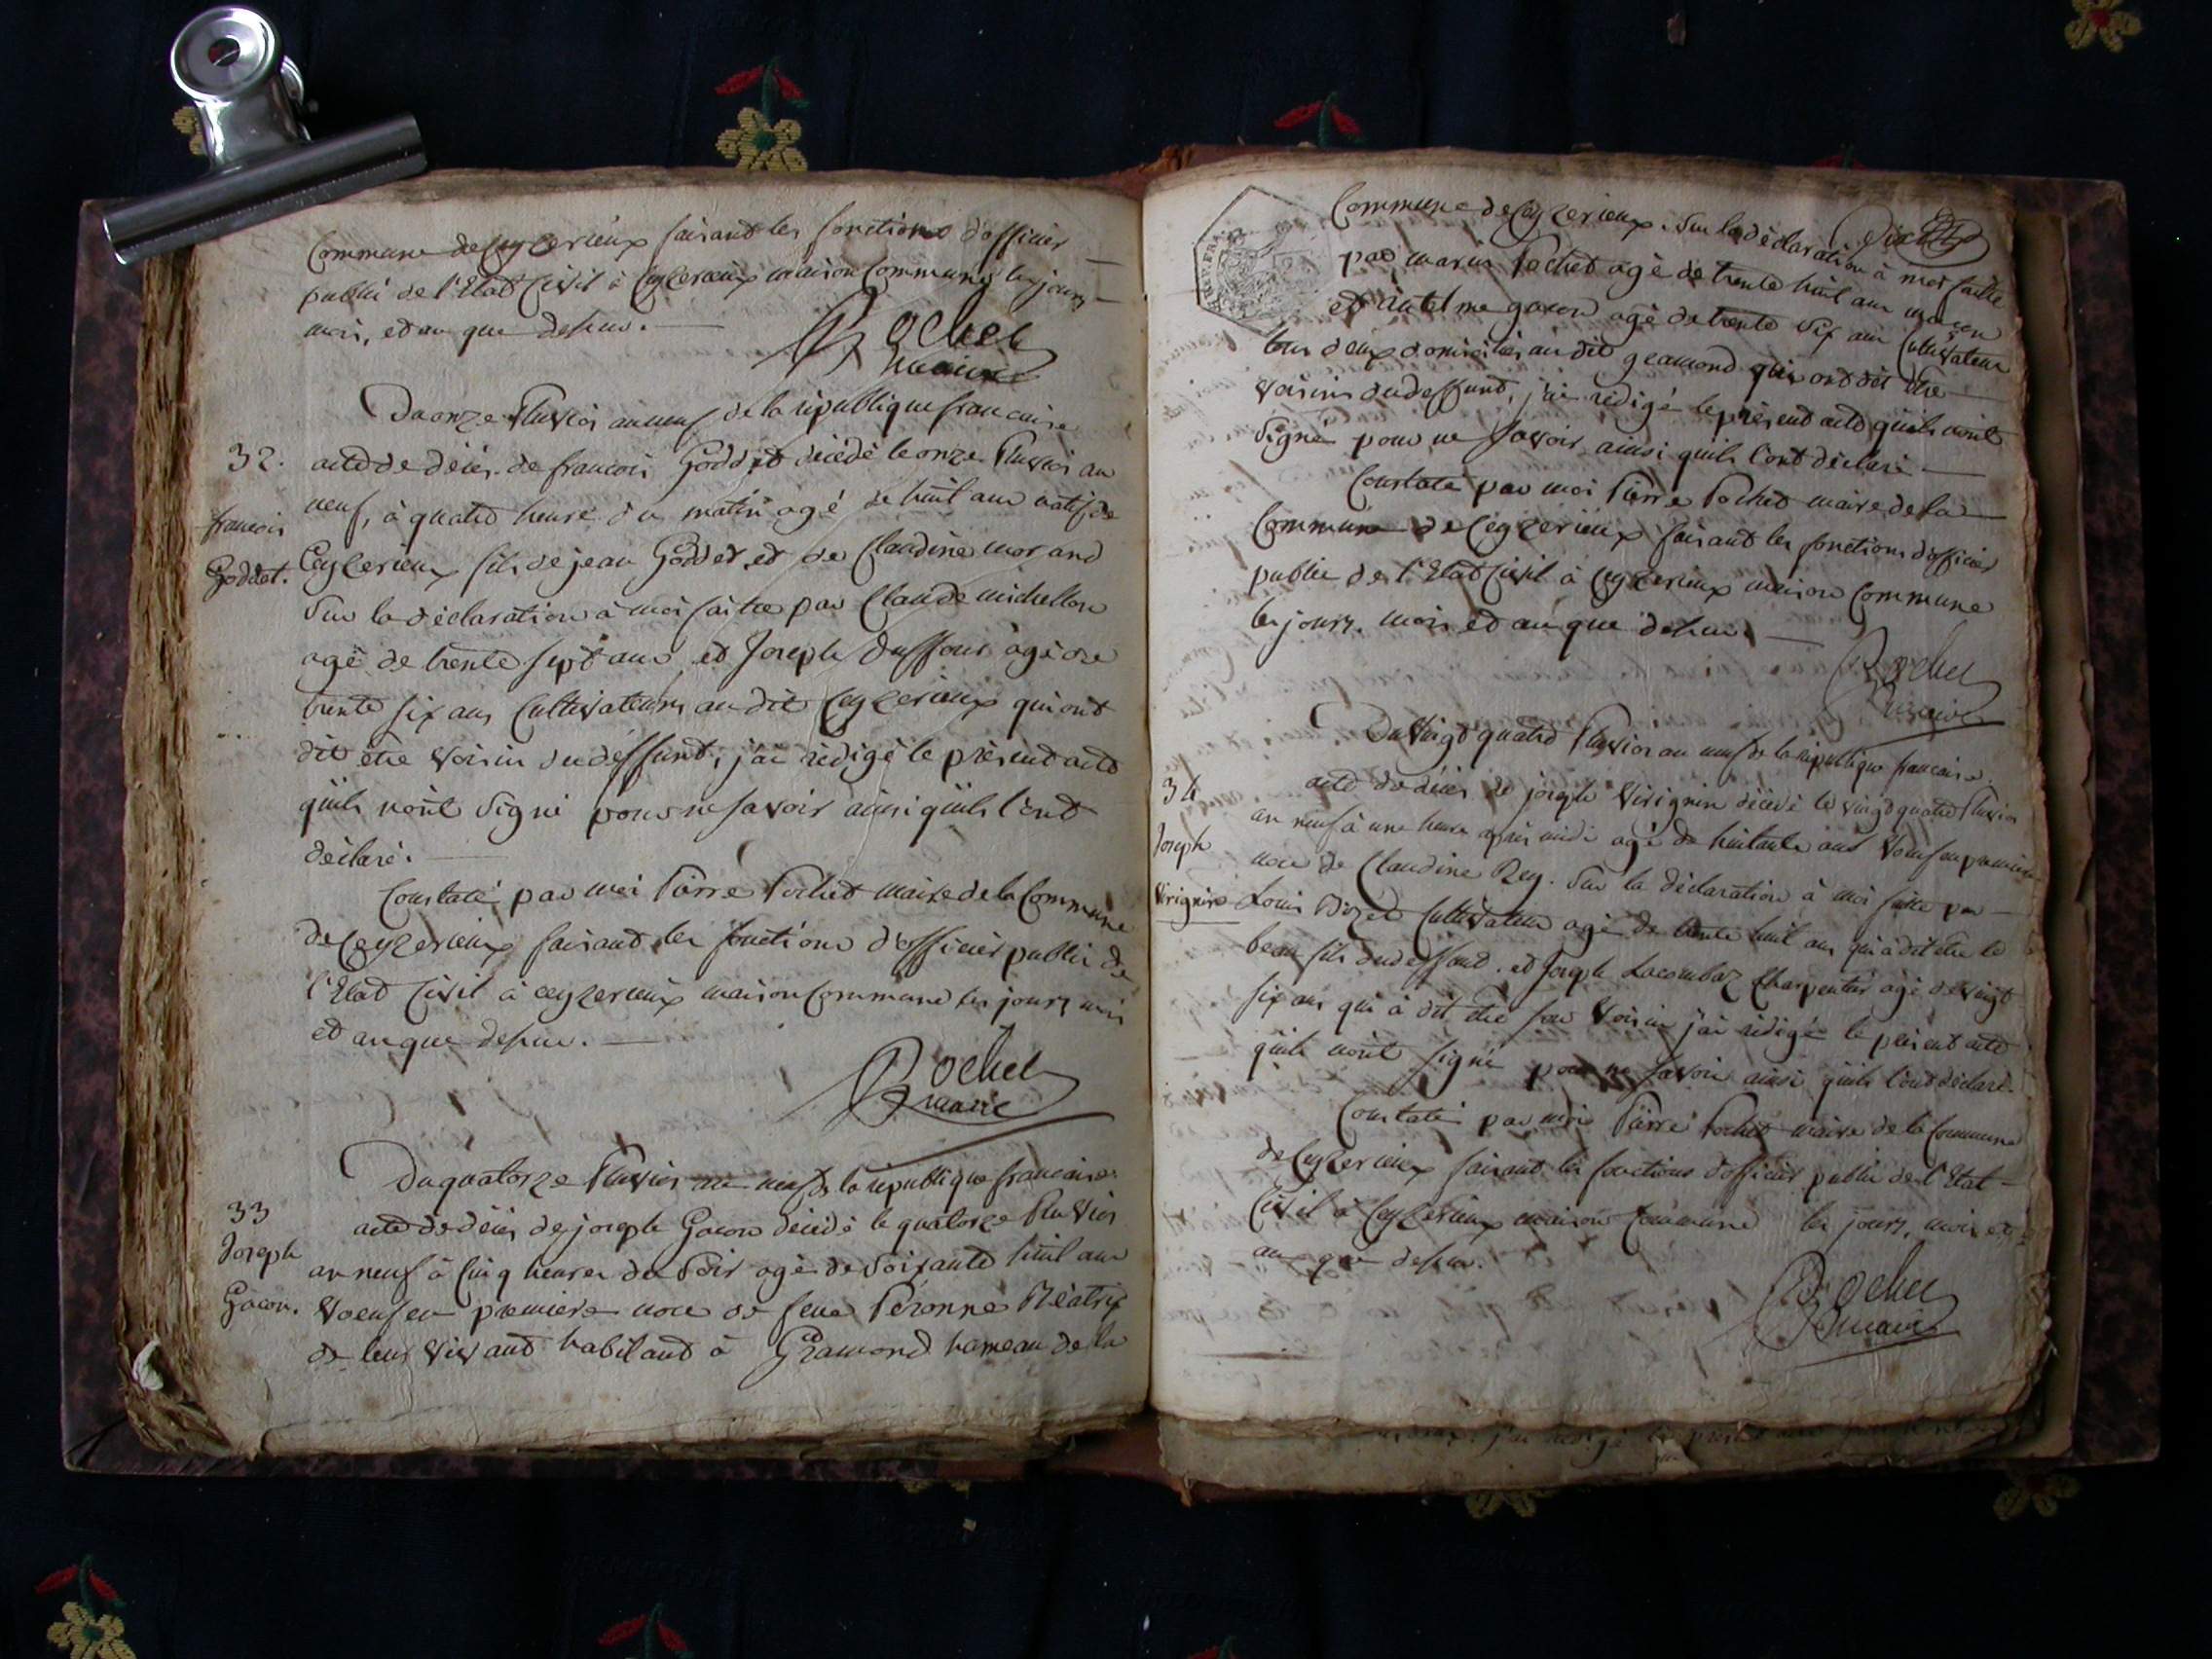 Commune de Ceyzerieux faisant les fonctions d'officier
public de l'Etat Civil à Ceyzerieux maison Commune les jours
mois, et an que dessus.
Pochet
maire
Du onze Pluvios an neuf de la république francaise
32. acte de décès de francois Goddet décédé le onze Pluvios an
neuf, à quatre heure du matin agé de huit ans natif de
francois
Goddet.
Ceyzerieux fils de jean Goddet et de Claudine morand
Sur la déclaration à moi faitte par Claude michellon
agé de trente sept ans et Joseph Duffour agé de
trente six ans Cultivateurs au dit Ceyzerieux qui ont
dit être voisin du deffunt, j'ai rédigé le présent acte
quils n'ont Signé pour ne savoir ainsi quils l'ont
déclaré.
Constaté par moi Pierre Pochet maire de la Commune
de Ceyzerieux faisant les fonctions d'officier public de
l'Etat Civil à ceyzerieux maison Commune les jours mois
et an que dessus.
Pochet
maire
Du quatorze Pluvios an neuf de la république francaise
33
Joseph
Gacon.
acte de décès de joseph Gacon décédé le quatorze Pluvios
an neuf à Cinq heures du Soir agé de Soixante huit ans
Voeuf en premiere noce de feue Péronne Béatrix
de leur vivant habitant à Gramond hameau de la
Commune de Ceyzerieux. Sur la déclaration à moi faitte
par marin Pochet agé de trente huit ans maçon
et antelme gacon agé de trente Six ans Cultivateur
tous deux domiciliés au dit geamond qui ont dit être
voisins du deffunt, j'ai rédigé le présent acte quils n'ont
Signé pour ne Savoir ainsi quils l'ont déclaré
Constaté par moi Pierre Pochet maire de la
Commune de Ceyzerieux faisant les fonctions d'officier
public de l'Etat Civil à Ceyzerieux maison Commune
les jours, mois et an que dessus.
Pochet
maire
Du vingt quatre Pluvios an neuf de la république francaise.
34
Joseph
Virignin
acte de décès de joseph Virignin décédé le vingt quatre Pluvios
an neuf à une heure après midi agé de huitante ans Voeuf en premiere
noce de Claudine Rey. Sur la déclaration à moi faitte par
Louis Cultivateur agé de trente huit ans qui à dit être le
beau fils du deffunt. et Joseph Lacombaz Charpentier agé de vingt
six ans qui à dit être son Voisin j'ai rédigé le présent acte
quils n'ont signé pour ne savoir ainsi quils l'ont déclaré.
Constaté par moi Pierre Pochet maire de la Commune
de Ceyzerieux faisant les fonctions d'officier public de l'Etat
Civil à Ceyzerieux maison Commune les jours, mois et
an que dessus.
Pochet
maire